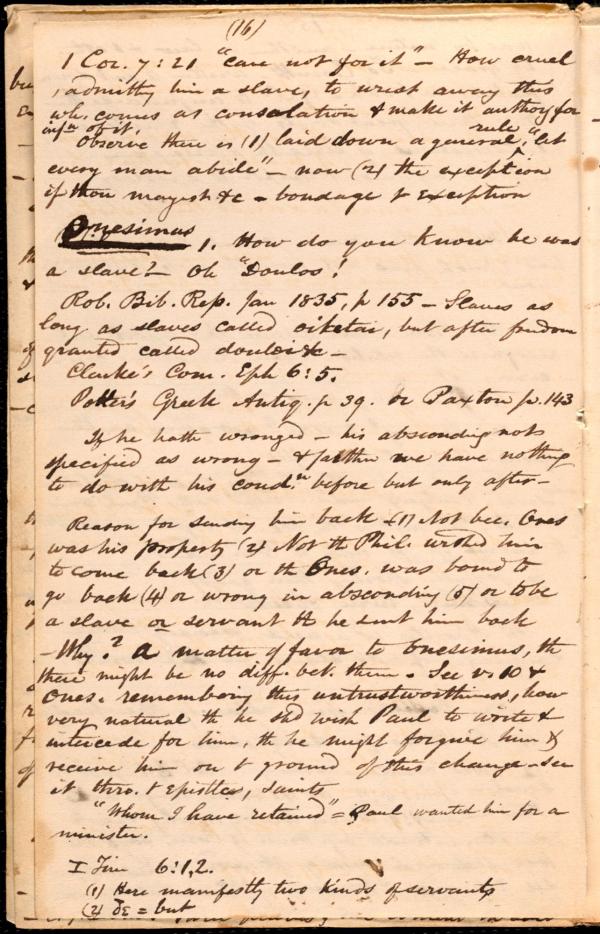 (16)
1 Cor. 7:21 "care not for it" – How cruel
, admittg him a slave, to wrest away this
wh. comes as consolation & make it authory for
infn of it.
Observe there is (1) laid down a general rule, "let
every man abide" – now (2) the exception
if thou mayest &c – bondage & Exception
Onesimus 1. How do you know he was
a slave? – Oh "Doulos!
Rob. Bib. Rep. Jan 1835, p 155 – Slaves as
long as slaves called oiketai, but after freedom
granted called douloi &c –
Clarke's Com. Eph 6:5.
Potter's Greek Antiq. p 39. or Paxton p. 143
If he hath wronged – his absconding not
specified as wrong – & farther we have nothing
to do with his condn before but only after –
Reason for sending him back (1) Not bec. Ones
was his property (2) Not th Phil. wishd him
to come back (3) or th Ones. was bound to
go back (4) or wrong in absconding (5) or to be
a slave or servant th he sent him back
– Why? A matter of favor to Onesimus, th
there might be no diff. bet. them. See vs 10 &
Ones. remembering this untrustworthiness, how
very natural th he shd wish Paul to write &
intercede for him, th he might forgive him &
receive him on t ground of this change – see
it thro. t Epistles, saints
"Whom I have retained" = Paul wanted him for a
minister.
I Tim 6:1,2.
(1) Here manifestly two kinds of servants
(2) δε = but